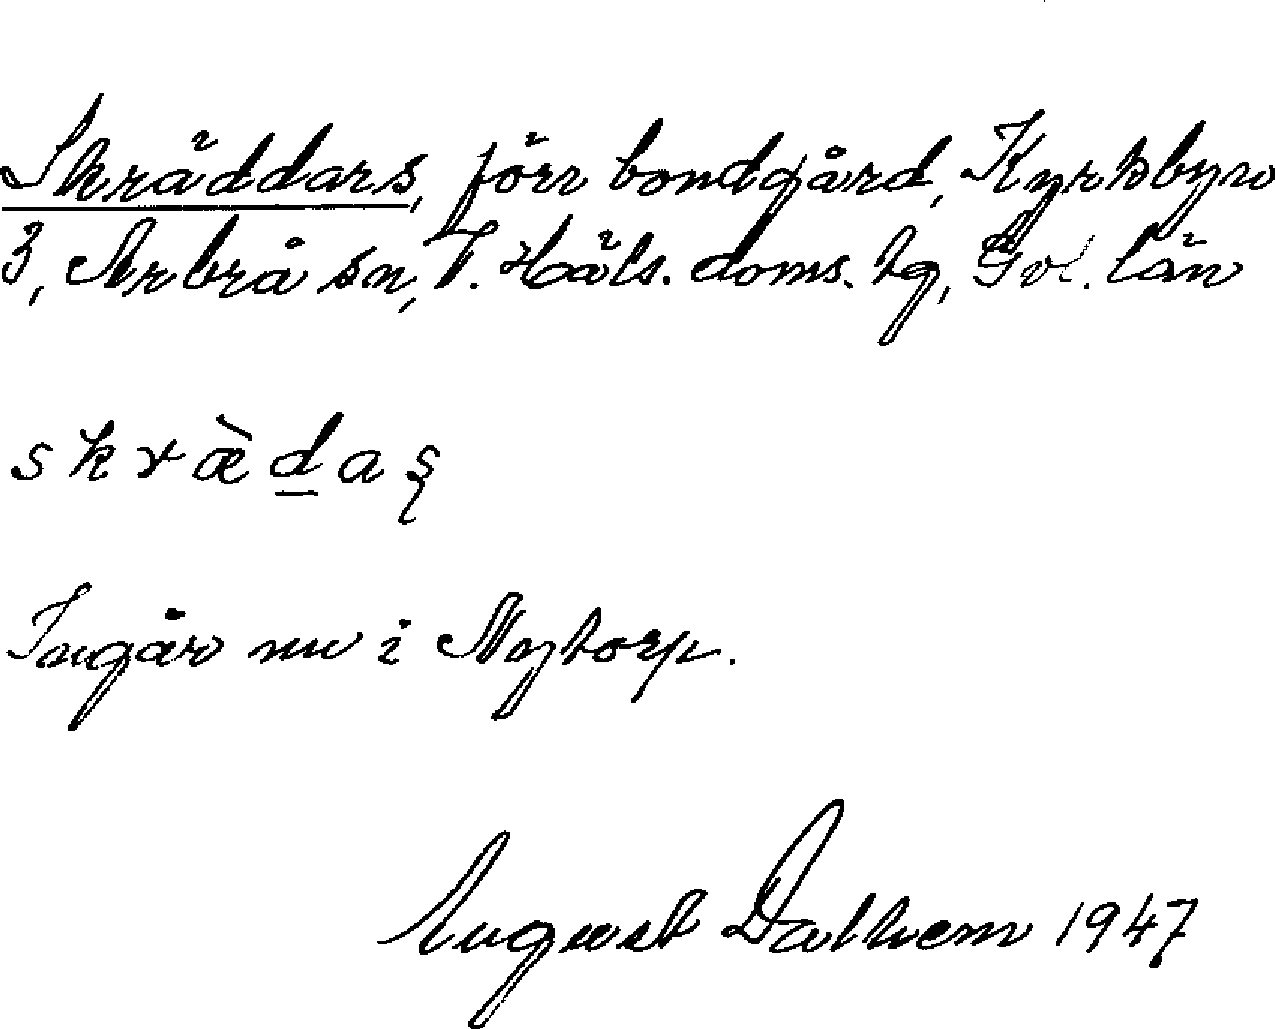 Skräddars, förr bondgård, Kyrkbyn
3, Arbrå sn, V. Häls. doms. tg, Gvl. län
skræ̀d̲aş
Ingår nu i Nytorp.
August Dalhem 1947